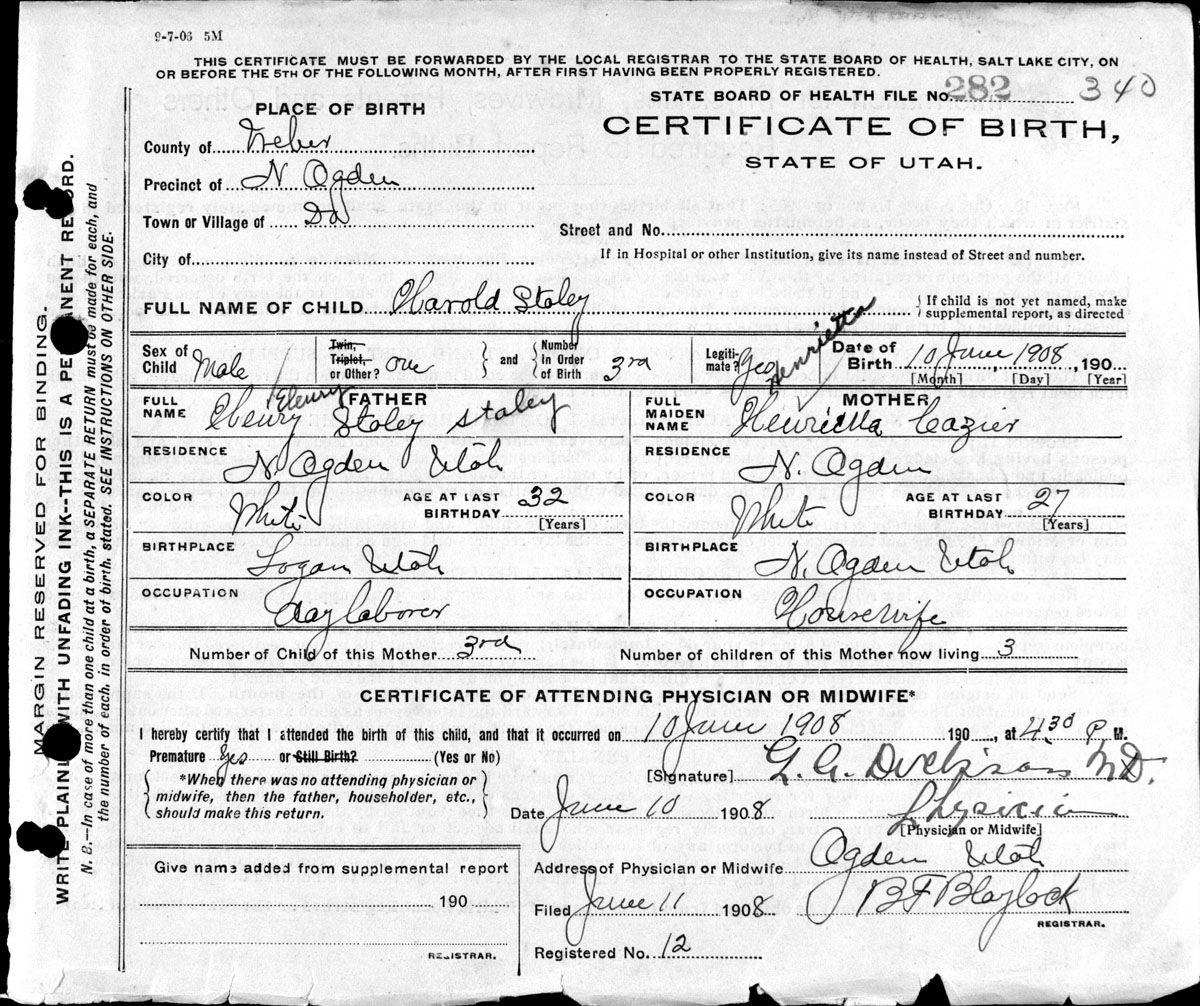 9-7-06 5M
THIS CERTIFICATE MUST BE FORWARDED BY THE LOCAL REGISTRAR TO THE STATE BOARD OF HEALTH, SALT LAKE CITY, ON
OR BEFORE THE 5TH OF THE FOLLOWING MONTH, AFTER FIRST HAVING BEEN PROPERLY REGISTERED.
STATE BOARD OF HEALTH FILE No. 282 340
PLACE OF BIRTH
CERTIFICATE OF BIRTH,
STATE OF UTAH.
County of Weber
Precinct of N Ogden
Town or Village of Do
Street and No.
City of
If in Hospital or other Institution, give its name instead of Street and number.
FULL NAME OF CHILD Harold Staley
{ If child is not yet named, make
supplemental report, as directed
Sex of Child Male
Twin, Triplet, or Other? One
and
Number in Order of Birth 3rd
Legitimate? Yes
Henrietta
Date of Birth 10 June 1908 190
[Month] [Day] [Year]
FATHER
FULL NAME Henry Staley Staley
Henry
MOTHER
FULL MAIDEN NAME Henrietta Cazier
RESIDENCE N. Ogden Utah
RESIDENCE N. Ogden
COLOR White
AGE AT LAST BIRTHDAY 32 [Years]
COLOR White
AGE AT LAST BIRTHDAY 27 [Years]
BIRTHPLACE Logan Utah
BIRTHPLACE N. Ogden Utah
OCCUPATION Day laborer
OCCUPATION Housewife
Number of Child of this Mother 3rd
Number of children of this Mother now living 3
CERTIFICATE OF ATTENDING PHYSICIAN OR MIDWIFE*
I hereby certify that I attended the birth of this child, and that it occurred on 10 June 1908 190 , at 4.30 P. M.
Premature Yes or Still Birth? (Yes or No)
*When there was no attending physician or
midwife, then the father, householder, etc.,
should make this return.
[Signature] M.D.
Date June 10 1908
Physician
[Physician or Midwife]
Give name added from supplemental report
190
REGISTRAR.
Address of Physician or Midwife Ogden Utah
Filed June 11 1908 B F Blaylock
REGISTRAR.
Registered No. 12
MARGIN RESERVED FOR BINDING.
WRITE PLAINLY WITH UNFADING INK--THIS IS A PERMANENT RECORD.
N. B.—In case of more than one child at a birth, a SEPARATE RETURN must be made for each, and
the number of each, in order of birth, stated. SEE INSTRUCTIONS ON OTHER SIDE.